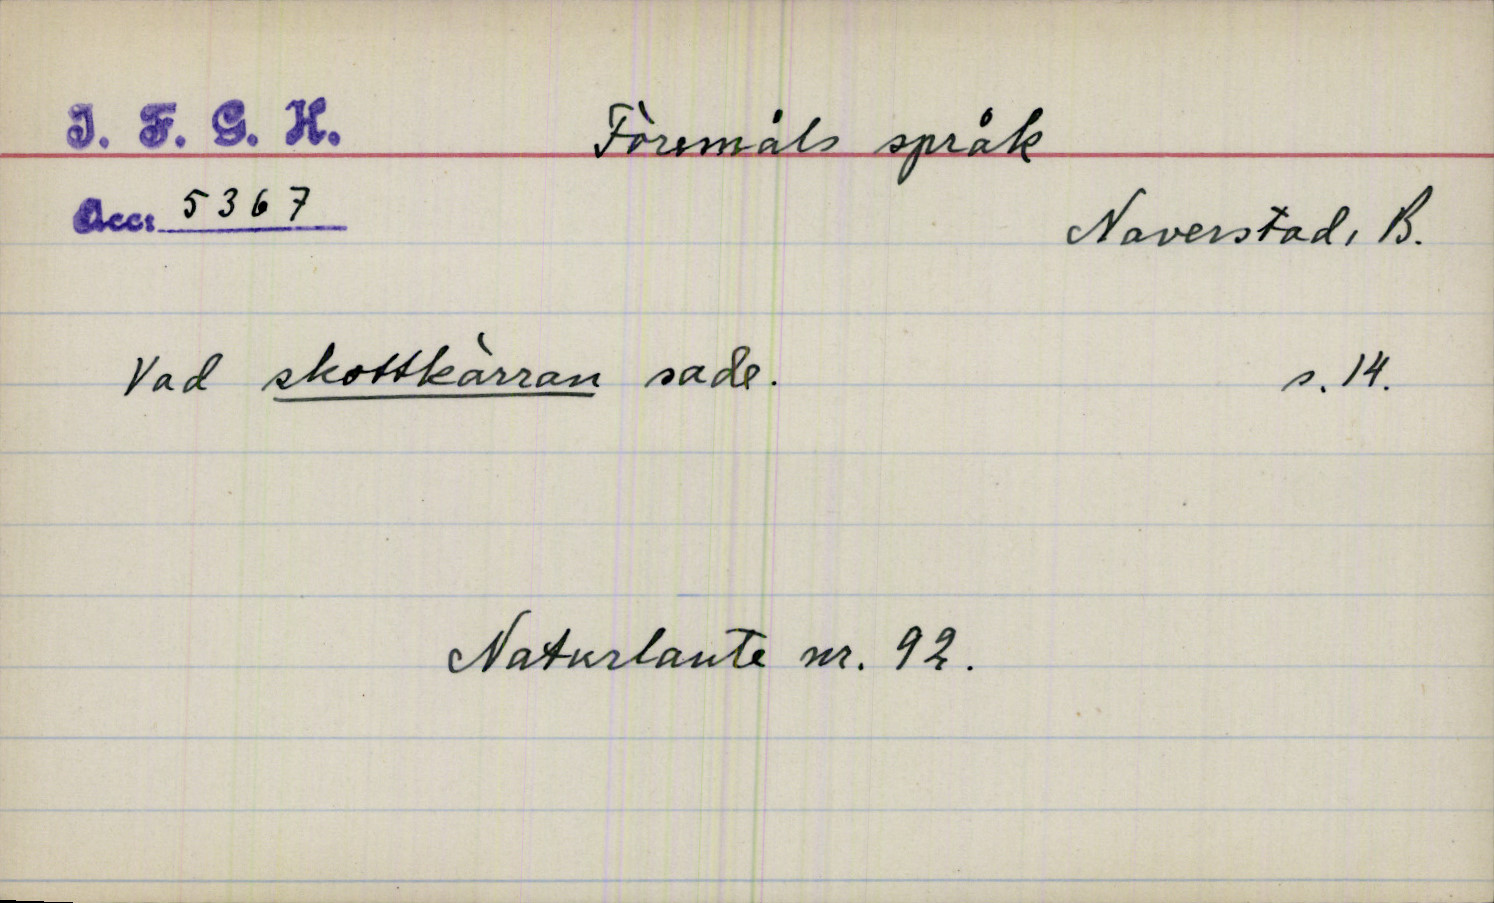 I. F. G. H.
Föremåls språk
Acc: 5367
Naverstad, B.
Vad skottkärran sade. s. 14.
Naturlaute nr. 92.